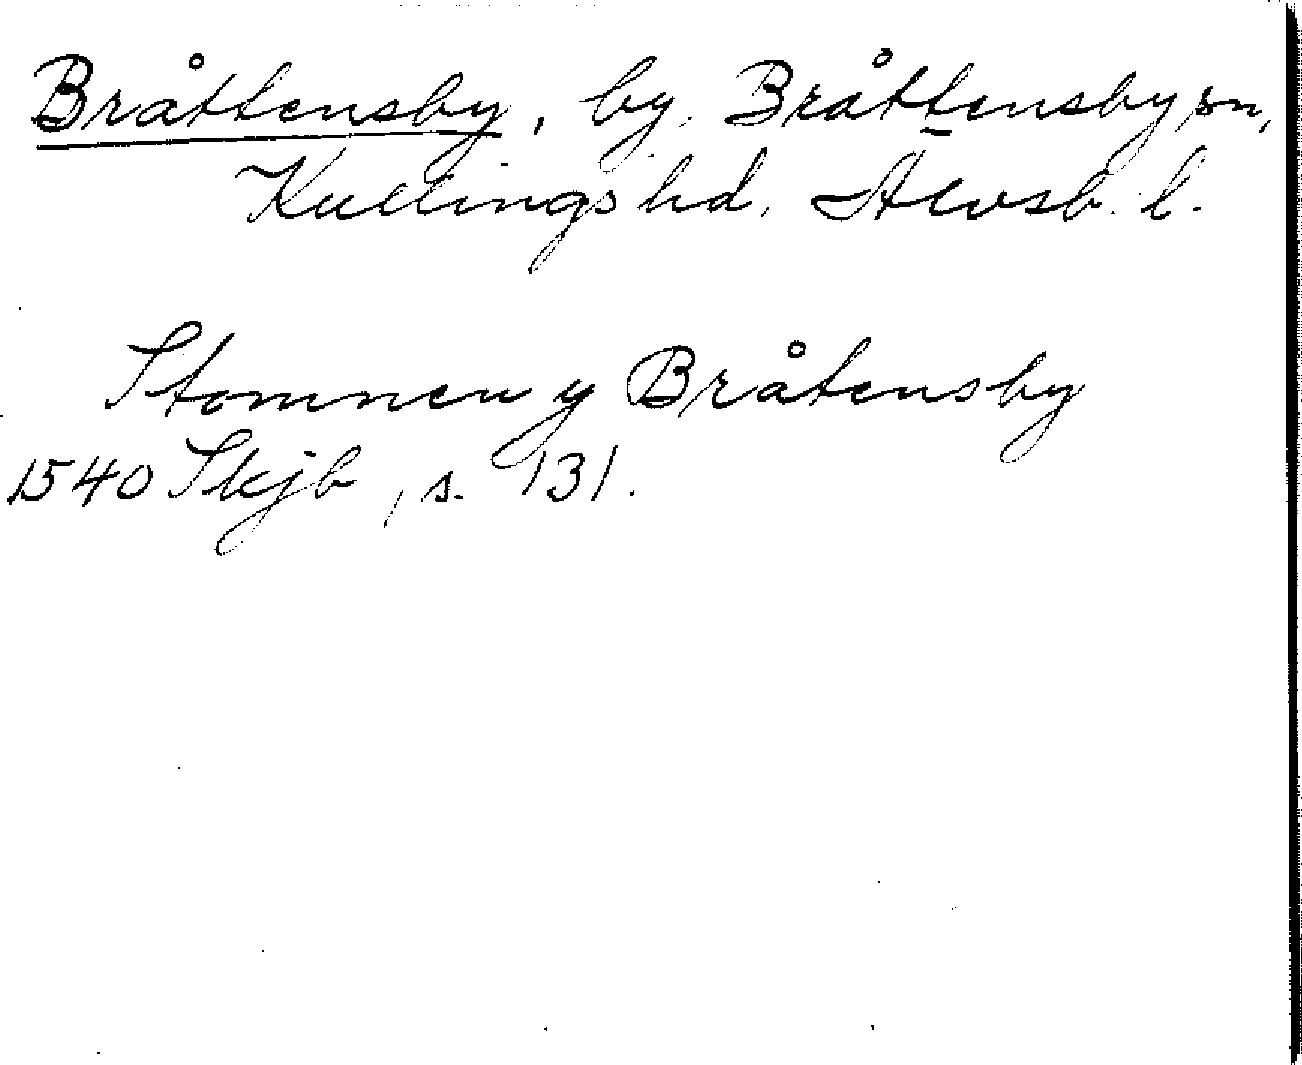 Bråttensby, by, Bråttensby sn,
Kullings hd, Älvsb. l.
Stomnen y Bråtensby
1540 Skjb, s. 131.